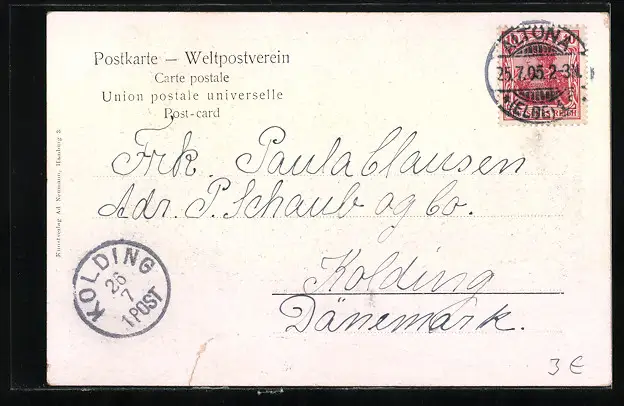 Postkarte — Weltpostverein
Carte postale
Union postale universelle
Post-card
ALTONA
25.7.05.2-3N.
Frk. Paula Clausen
Adr. P. Schaub og Co.
Kolding
Dänemark.
KOLDING
26
7
1 POST
Kunstverlag Ad. Neumann, Hamburg 3
3 €